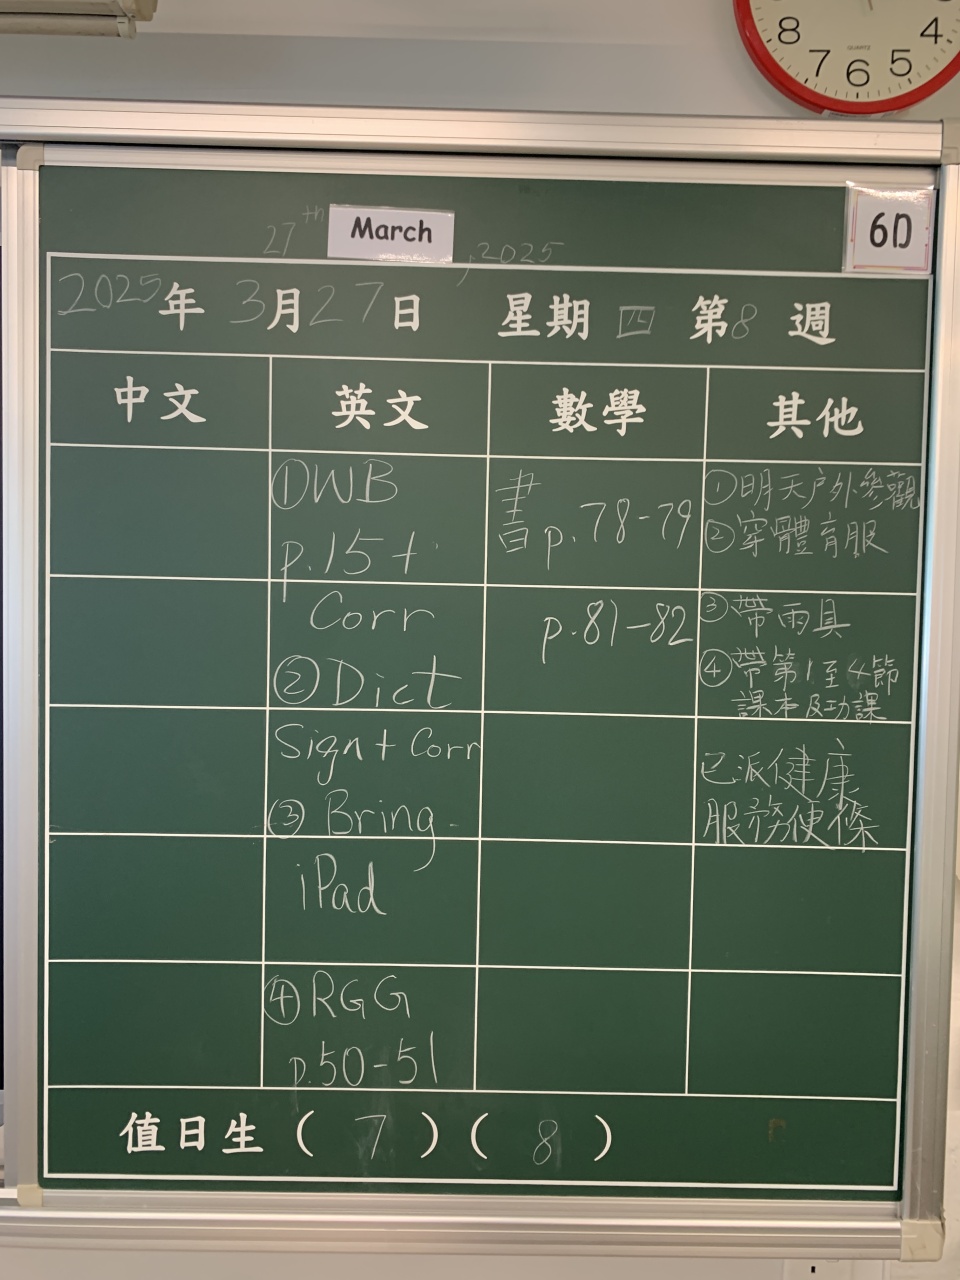 8 7 6 5 4
QUARTZ
27th March, 2025
6D
2025年3月27日 星期四 第8週
中文 英文 數學 其他
①WB
p.15+
Corr
②Dict
Sign+Corr
③Bring
iPad
④RGG
p.50-51
書p.78-79
p.81-82
①明天戶外參觀
②穿體育服
③帶雨具
④帶第1至4節
課本及功課
已派健康
服務便條
值日生(7)(8)